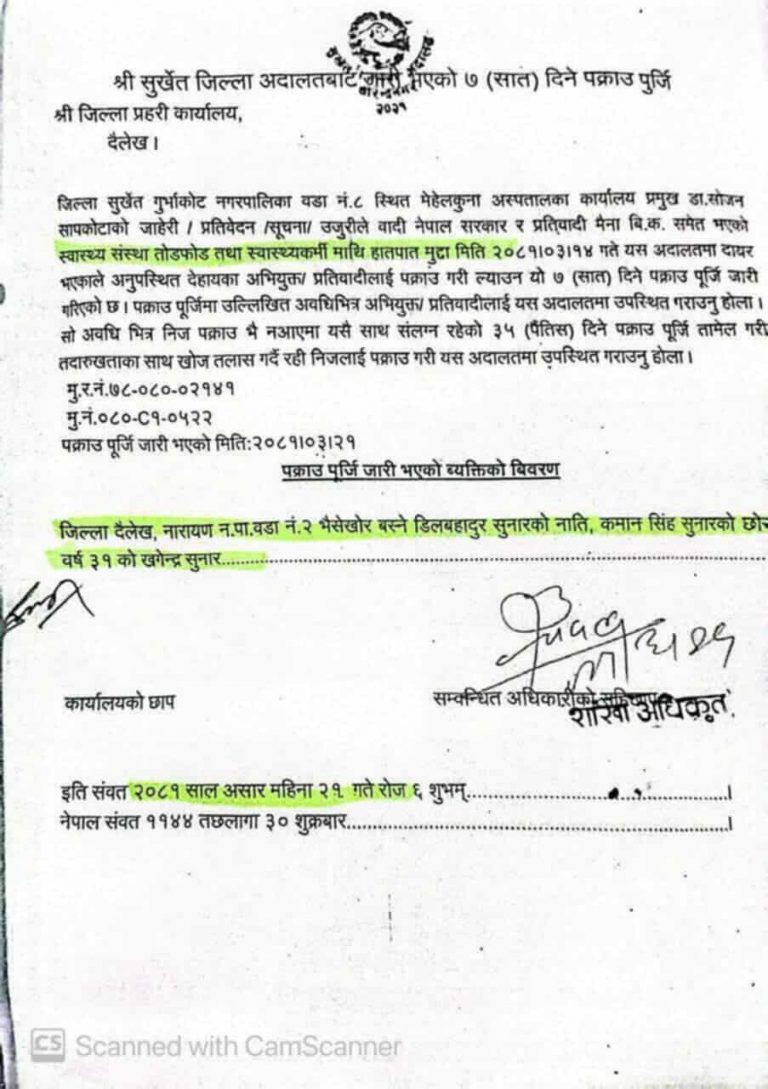 २०२१
श्री सुर्खेत जिल्ला अदालतबाट जारी भएको ७ (सात) दिने पक्राउ पुर्जि
श्री जिल्ला प्रहरी कार्यालय,
दैलेख।
जिल्ला सुर्खेत गुर्भाकोट नगरपालिका वडा नं.८ स्थित मेहेलकुना अस्पतालका कार्यालय प्रमुख डा.सोजन
सापकोटाको जाहेरी / प्रतिवेदन /सूचना/ उजुरीले वादी नेपाल सरकार र प्रतिवादी मैना बि.क. समेत भएको
स्वास्थ्य संस्था तोडफोड तथा स्वास्थ्यकर्मी माथि हातपात मुद्दा मिति २०८१।०३।१४ गते यस अदालतमा दायर
भएकाले अनुपस्थित देहायका अभियुक्त/ प्रतिवादीलाई पक्राउ गरी ल्याउन यो ७ (सात) दिने पक्राउ पूर्जि जारी
गरिएको छ। पक्राउ पूर्जिमा उल्लिखित अवधिभित्र अभियुक्त/ प्रतिवादीलाई यस अदालतमा उपस्थित गराउनु होला।
सो अवधि भित्र निज पक्राउ भै नआएमा यसै साथ संलग्न रहेको ३५ (पैंतिस) दिने पक्राउ पूर्जि तामेल गरी
तदारुखताका साथ खोज तलास गर्दै रही निजलाई पक्राउ गरी यस अदालतमा उपस्थित गराउनु होला।
मु.र.नं.७८-०८०-०२१४१
मु.नं.०८०-C१-०५२२
पक्राउ पूर्जि जारी भएको मिति:२०८१।०३।२१
पक्राउ पूर्जि जारी भएको ब्यक्तिको बिवरण
जिल्ला दैलेख, नारायण न.पा.वडा नं.२ भैसेखोर बस्ने डिलबहादुर सुनारको नाति, कमान सिंह सुनारको छोरा
वर्ष ३१ को खगेन्द्र सुनार....................
कार्यालयको छाप
सम्वन्धित अधिकारीको
शाखा अधिकृत
इति संवत २०८१ साल असार महिना २१ गते रोज ६ शुभम्....................।
नेपाल संवत ११४४ तछलागा ३० शुक्रबार....................।
CS Scanned with CamScanner